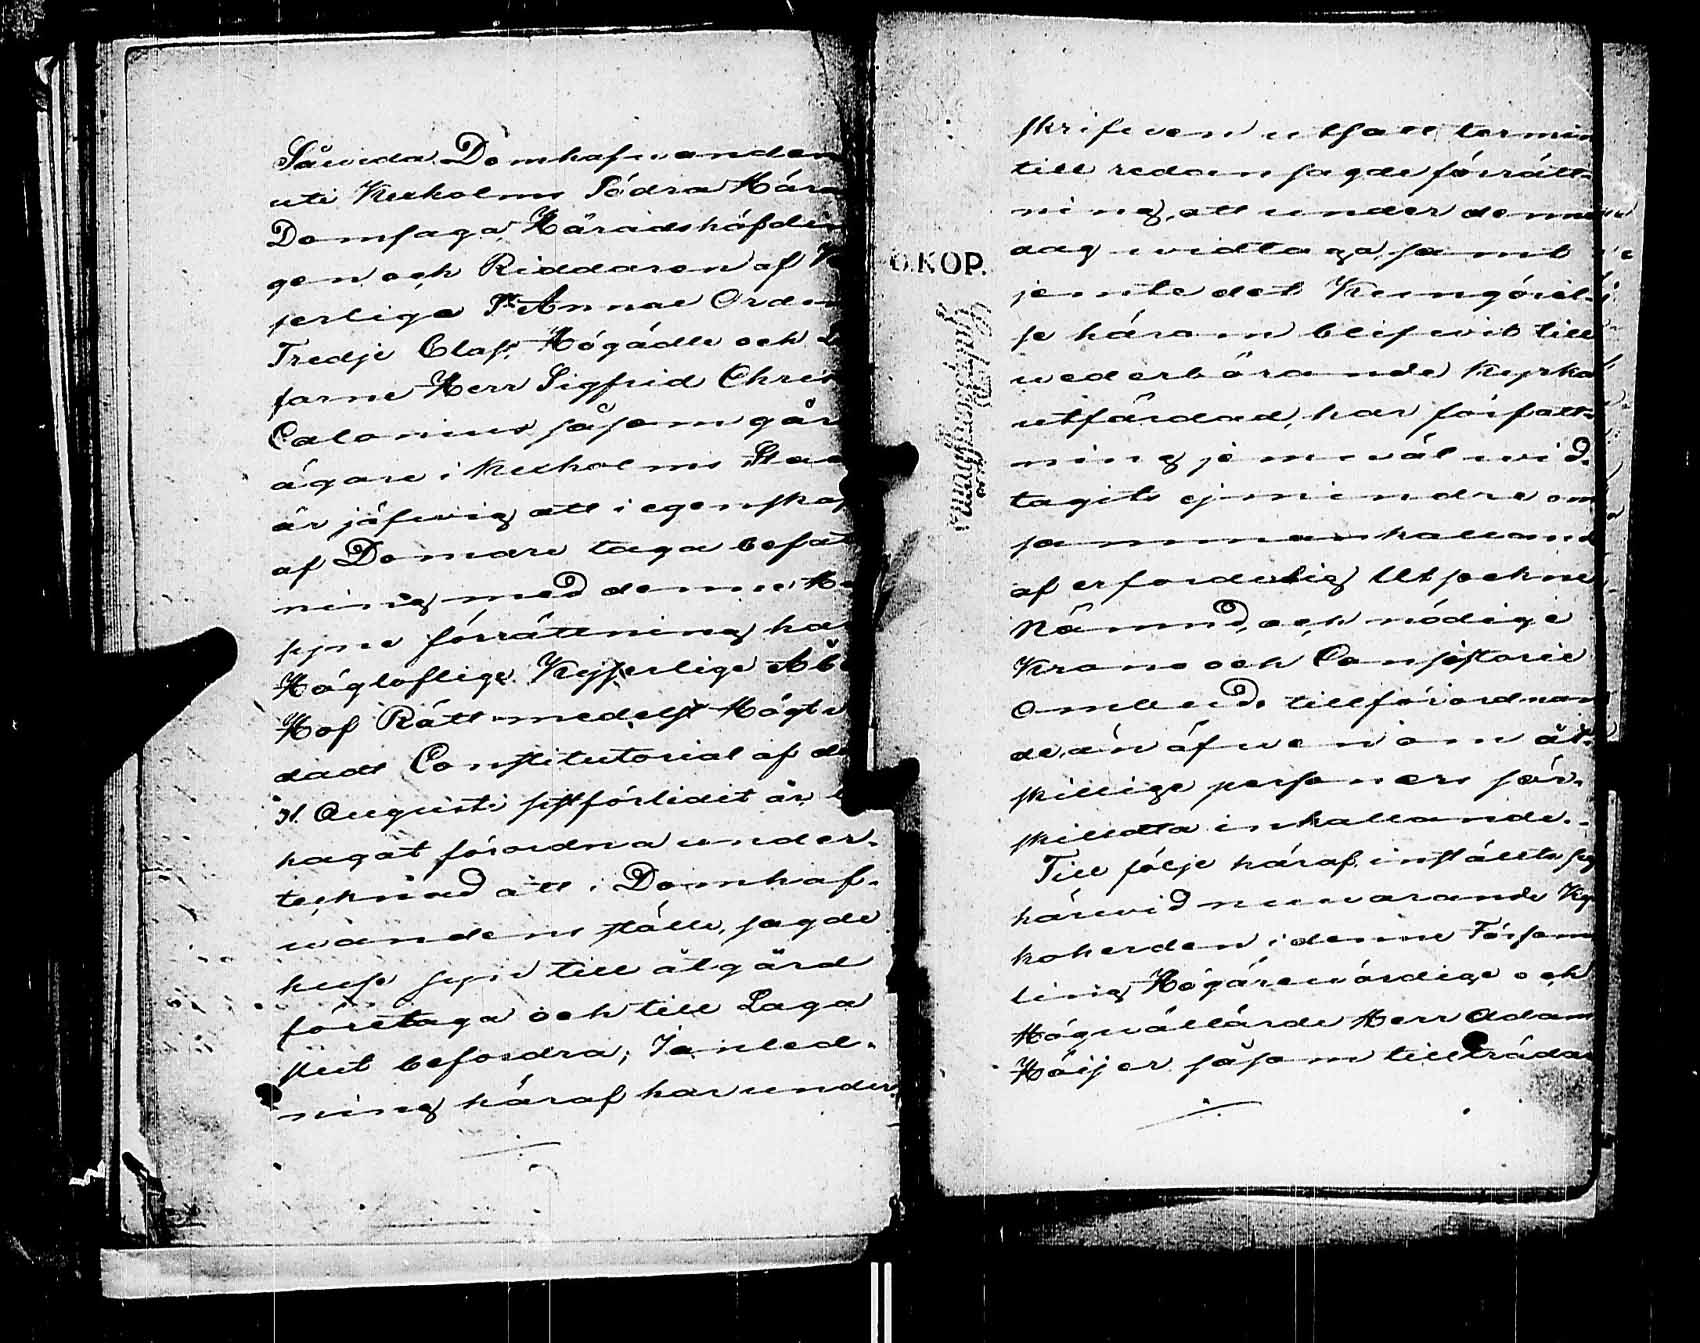 Såvida Domhafwanden
uti Kexholms Södra Härad
Domsaga, Häradshöfdin
gen och Riddaren af K
serliga St Annae Orden
Tredje Class, Högädle och L
farne Herr Sigfrid Chris
Calonius såsom går
ägare i Kexholms Stad
är jäfvig att i egenskap
af Domare taga befatt
ning med denne Hu
sesyne förrättning har
Höglofliga Kejserlige Åbo
Hof Rätt medelst Högt
dadt Constitutorial af d
31. Augusti sistförlidit år
hagat förordna under-
teknad att i Domhaf-
wandens ställe, sagde
huse syn till åtgärd
företaga och till Laga
slut befordra; I anled-
ning häraf har under
skrifwen utsatt termin
till redan sagde förrätt-
ning, att under denne
dag widtaga, samt
jemte det Kungörel-
se härom blifwit till
wederbörande Kyrko
utfärdad, har författ-
ning jemwäl wid-
tagits ej mindre om
sammankallande
af erforderlig Utsockne
Nämnd, och nödige
Krono och Consistorie
Ombuds tillförordnan
de, än äfwen om åt-
skillige personers sär-
skildta inkallande.-
Till följe häraf, inställte sig
härwid nuwarande Ky
koherden i denne Försam
ling Högärewördige och
Högwällärde Herr Adam
Höijer såsom tillträda
Ö.KOP.